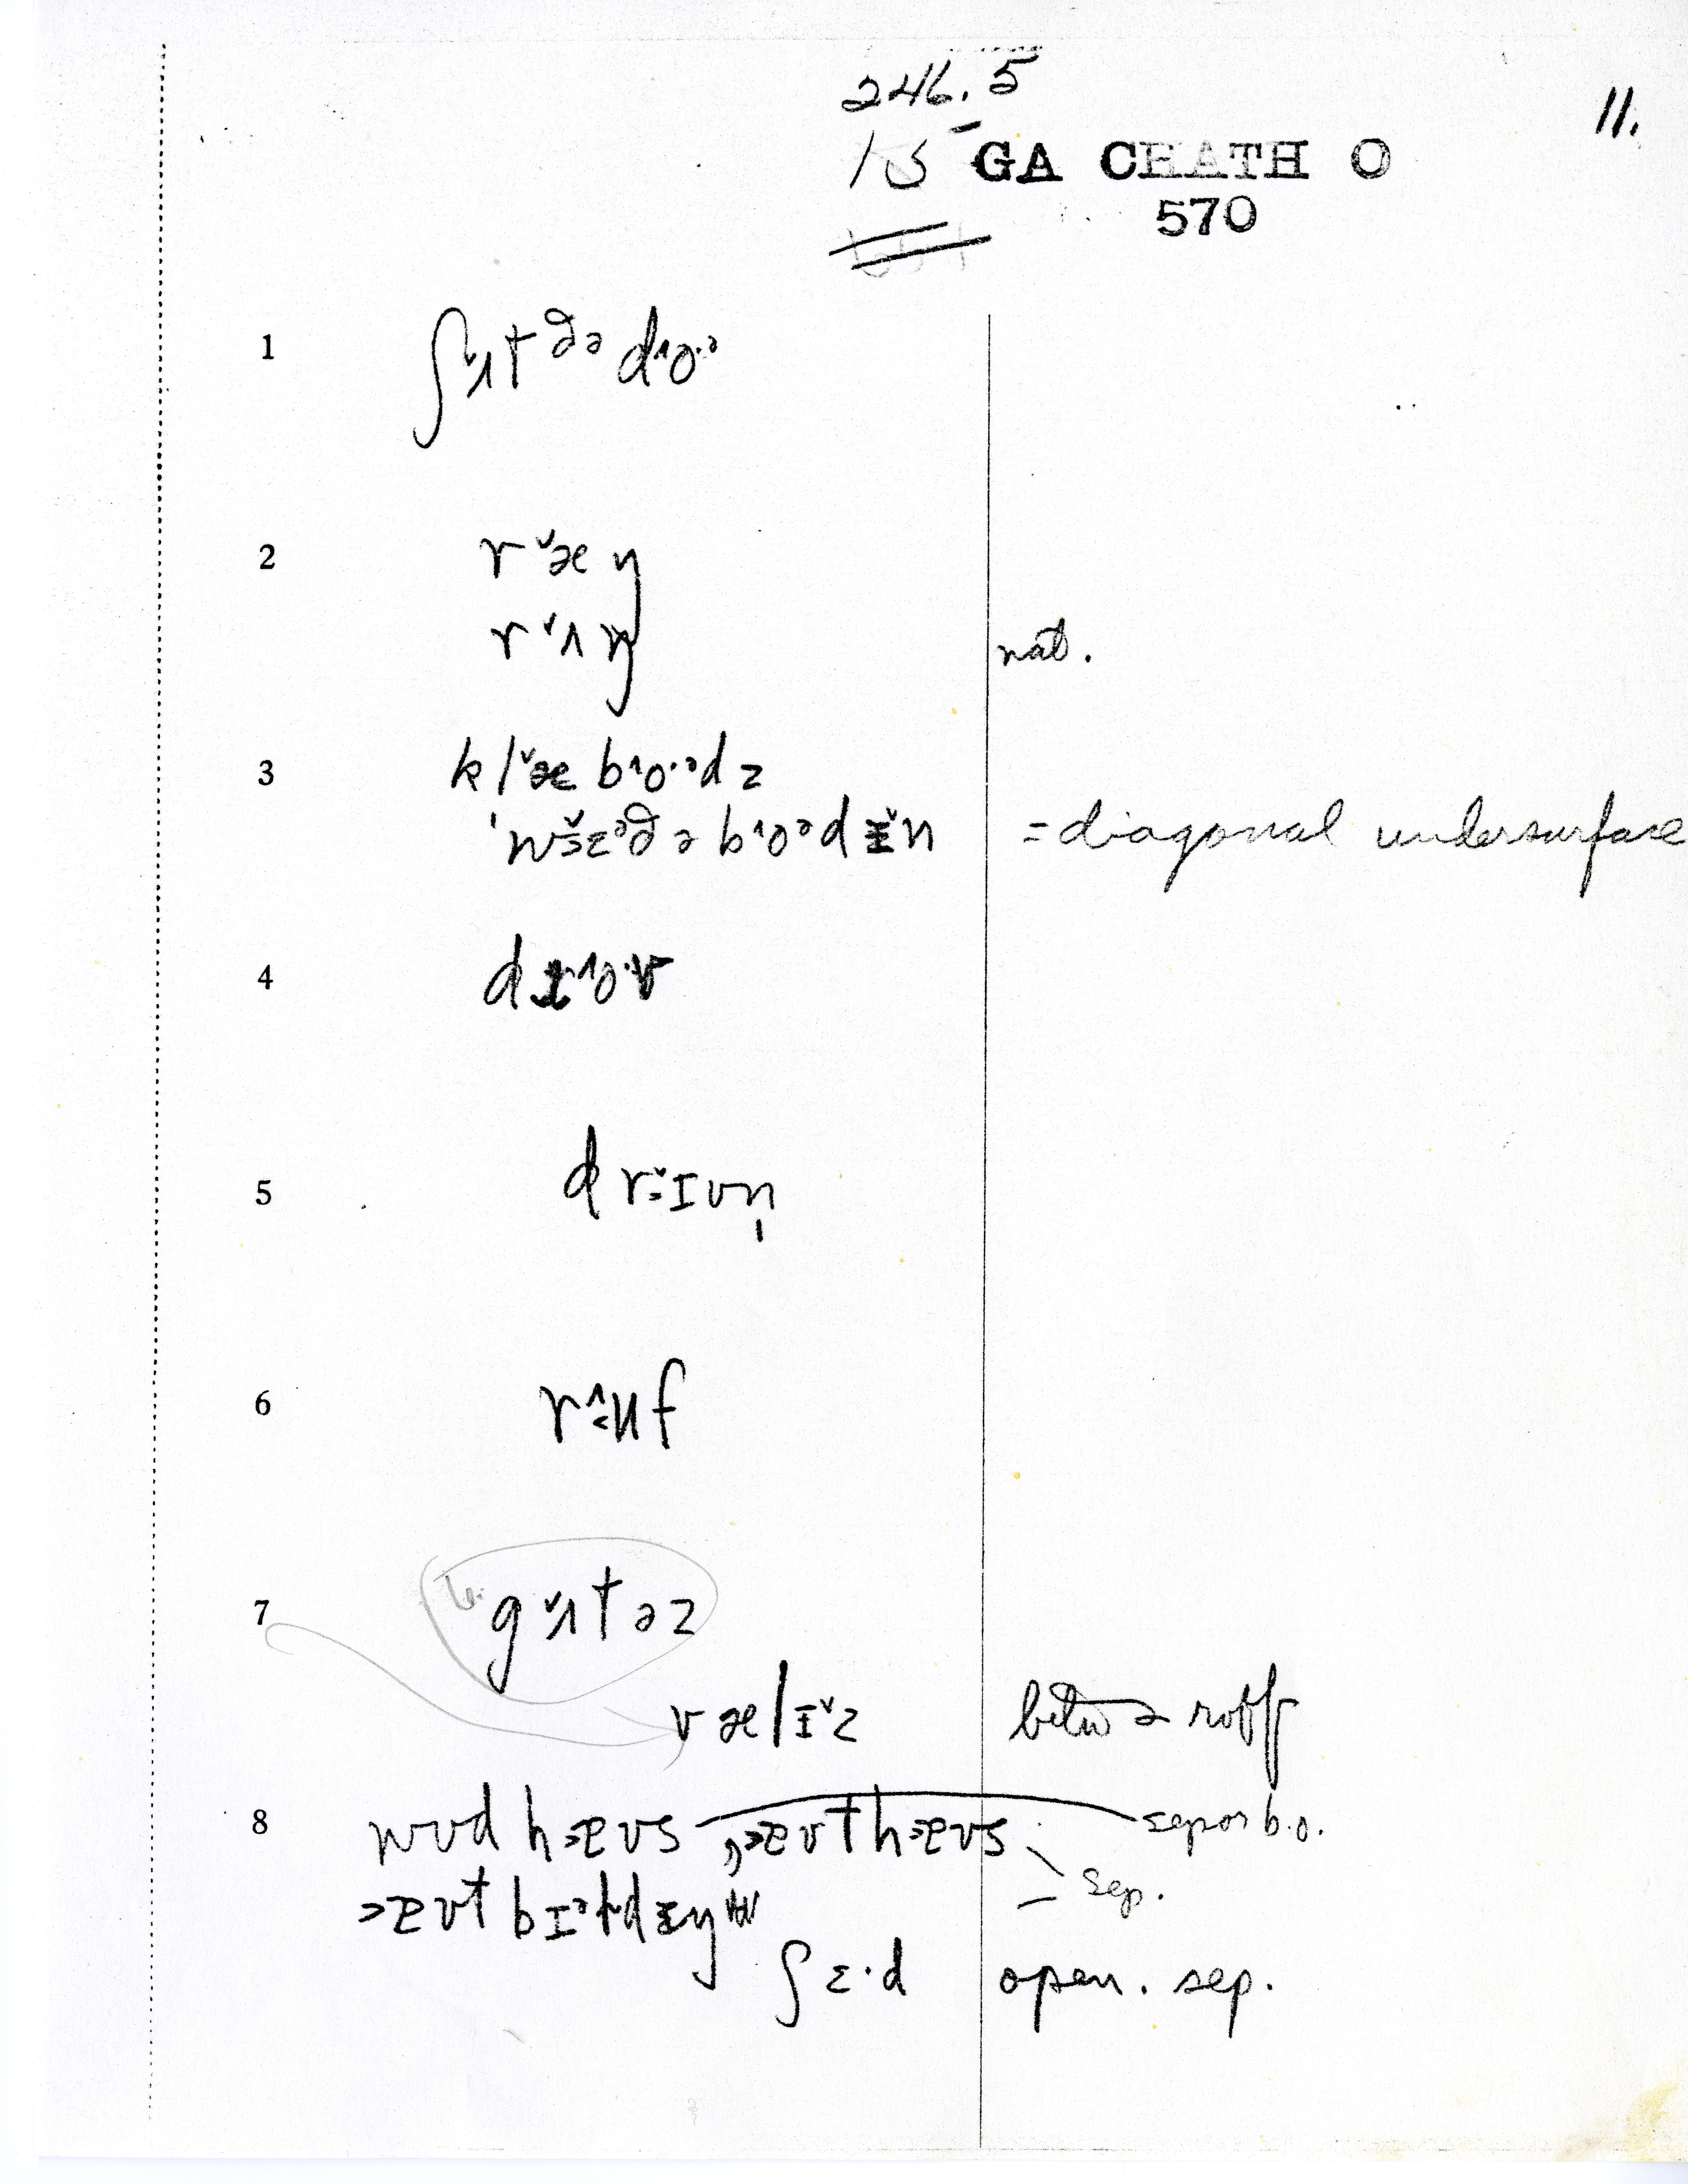 246.5
11.
15 GA CHATH O
570
1 ʃʌt ðə do·ə
2 ræŋ
rʌŋ nat.
3 klæbo·ədz
wɛəðəboədɪn = diagonal undersurface
4 dro·v
5 drɪvn̩
6 ruf
7 gʌtəz
vælɪz betw 2 roofs
8 wud haus, authaus sep or b.o.
aut bɪldɪŋ sep.
ʃɛ·d open. sep.